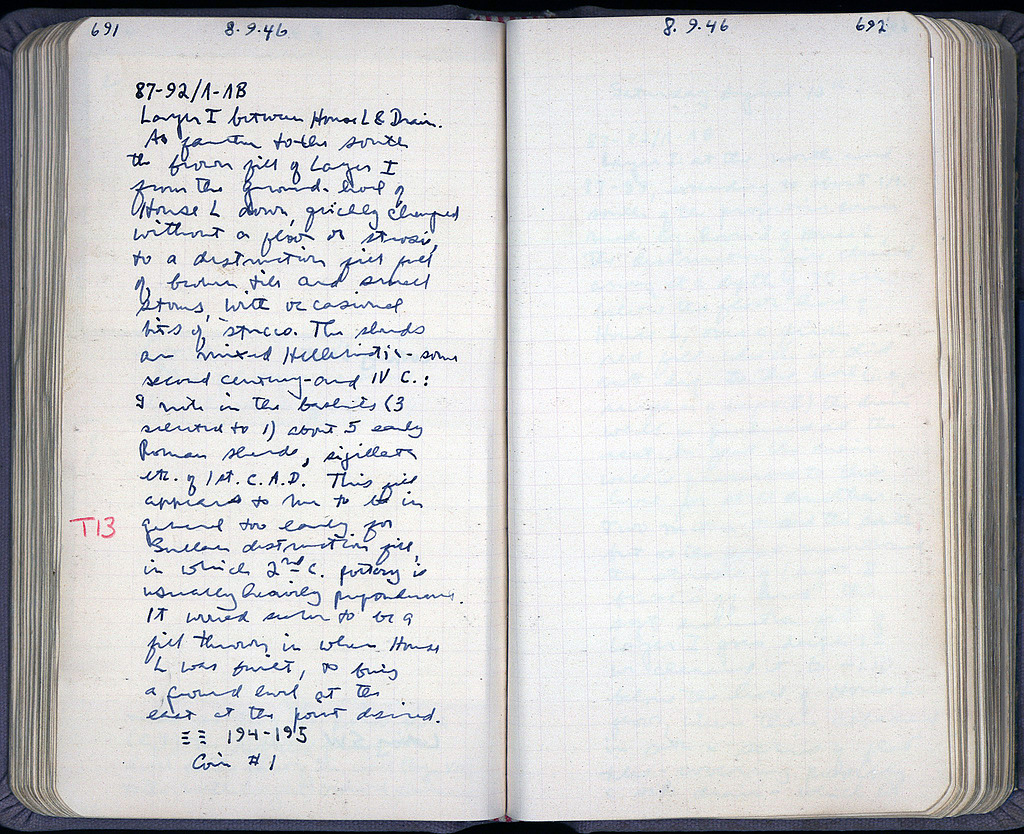 691 8.9.46
87-92/Λ-ΛB
Layer I between House L & Drain.
As further to the south
the brown fill of Layer I
from the ground-level of
House L down, quickly changed
without a floor or strosis,
to a destruction fill full
of broken tiles and small
stones, with occasional
bits of stucco. The sherds
are mixed Hellenistic - some
second century - and IV C.:
I note in the baskets (3
selected to 1) about 5 early
Roman sherds, sigillata
etc. of 1st. C. A.D. This fill
appears to me to be in
T13 general too early for
Sullan destruction fill,
in which 2nd C. pottery is
usually heavily preponderant.
It would seem to be a
fill thrown in when House
L was built, to bring
a ground level at the
east at the point desired.
ΞΞ 194-195
Coin #1
8.9.46 692